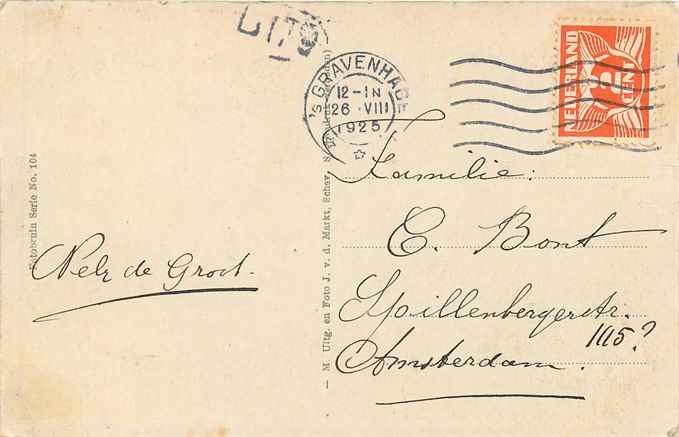 'S GRAVENHAGE
12-1N
26 VIII
1925
NEDERLAND
2
CENT
Fotobruin Serie No. 104
— M. Uitg. en Foto J. v. d. Markt, Schev.
Familie:
C. Bont
Spillenbergerstr.
1115?
Amsterdam.
Nelz de Groot.